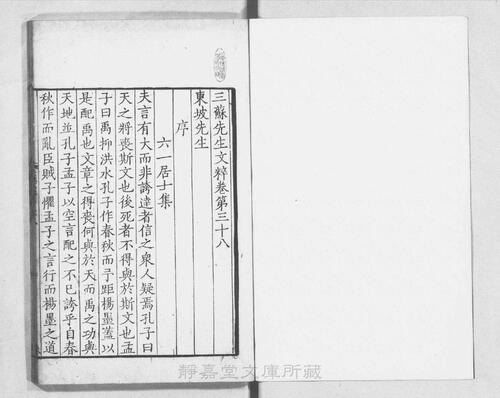 三蘇先生文粹卷第三十八
東坡先生
序
六一居士集
夫言有大而非誇達者信之衆人疑焉孔子曰
天之將喪斯文也後死者不得與於斯文也孟
子曰禹抑洪水孔子作春秋而予距楊墨蓋以
是配禹也文章之得喪何與於天而禹之功與
天地並孔子孟子以空言配之不已誇乎自春
秋作而亂臣賊子懼孟子之言行而楊墨之道
靜嘉堂文庫所藏